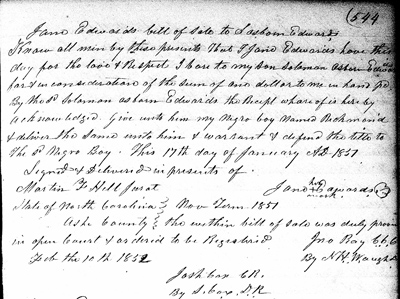 (544
Jane Edwards bill of Sale to Sasborn Edwards
Know all men by these presents that I Jane Edwards have this
day for the love & Respect I bare to my son Soloman Asborn Edwards
for & in consideration of the sum of one dollar to me in hand pd
By the Sd Soloman asborn Edwards the Receipt whareof is here by
acknowledged. Give unto him my Negro boy Named Richmond
& deliver the same unto him & warrant & defend the title to
The Sd Negro Boy. This 17th day of January AD 1851
Signed & Delivered in presents of
Martin Hell Jurat
Jane her mark Edwards
State of North Carolina Nov Term 1851
Ashe County the within bill of sale was duly proven
in open Court & ordered to be Registered
Jno Ray Clk
Feb the 10th 1852
By N H Waugh
Josh Cox CR.
By S. Cox D.R